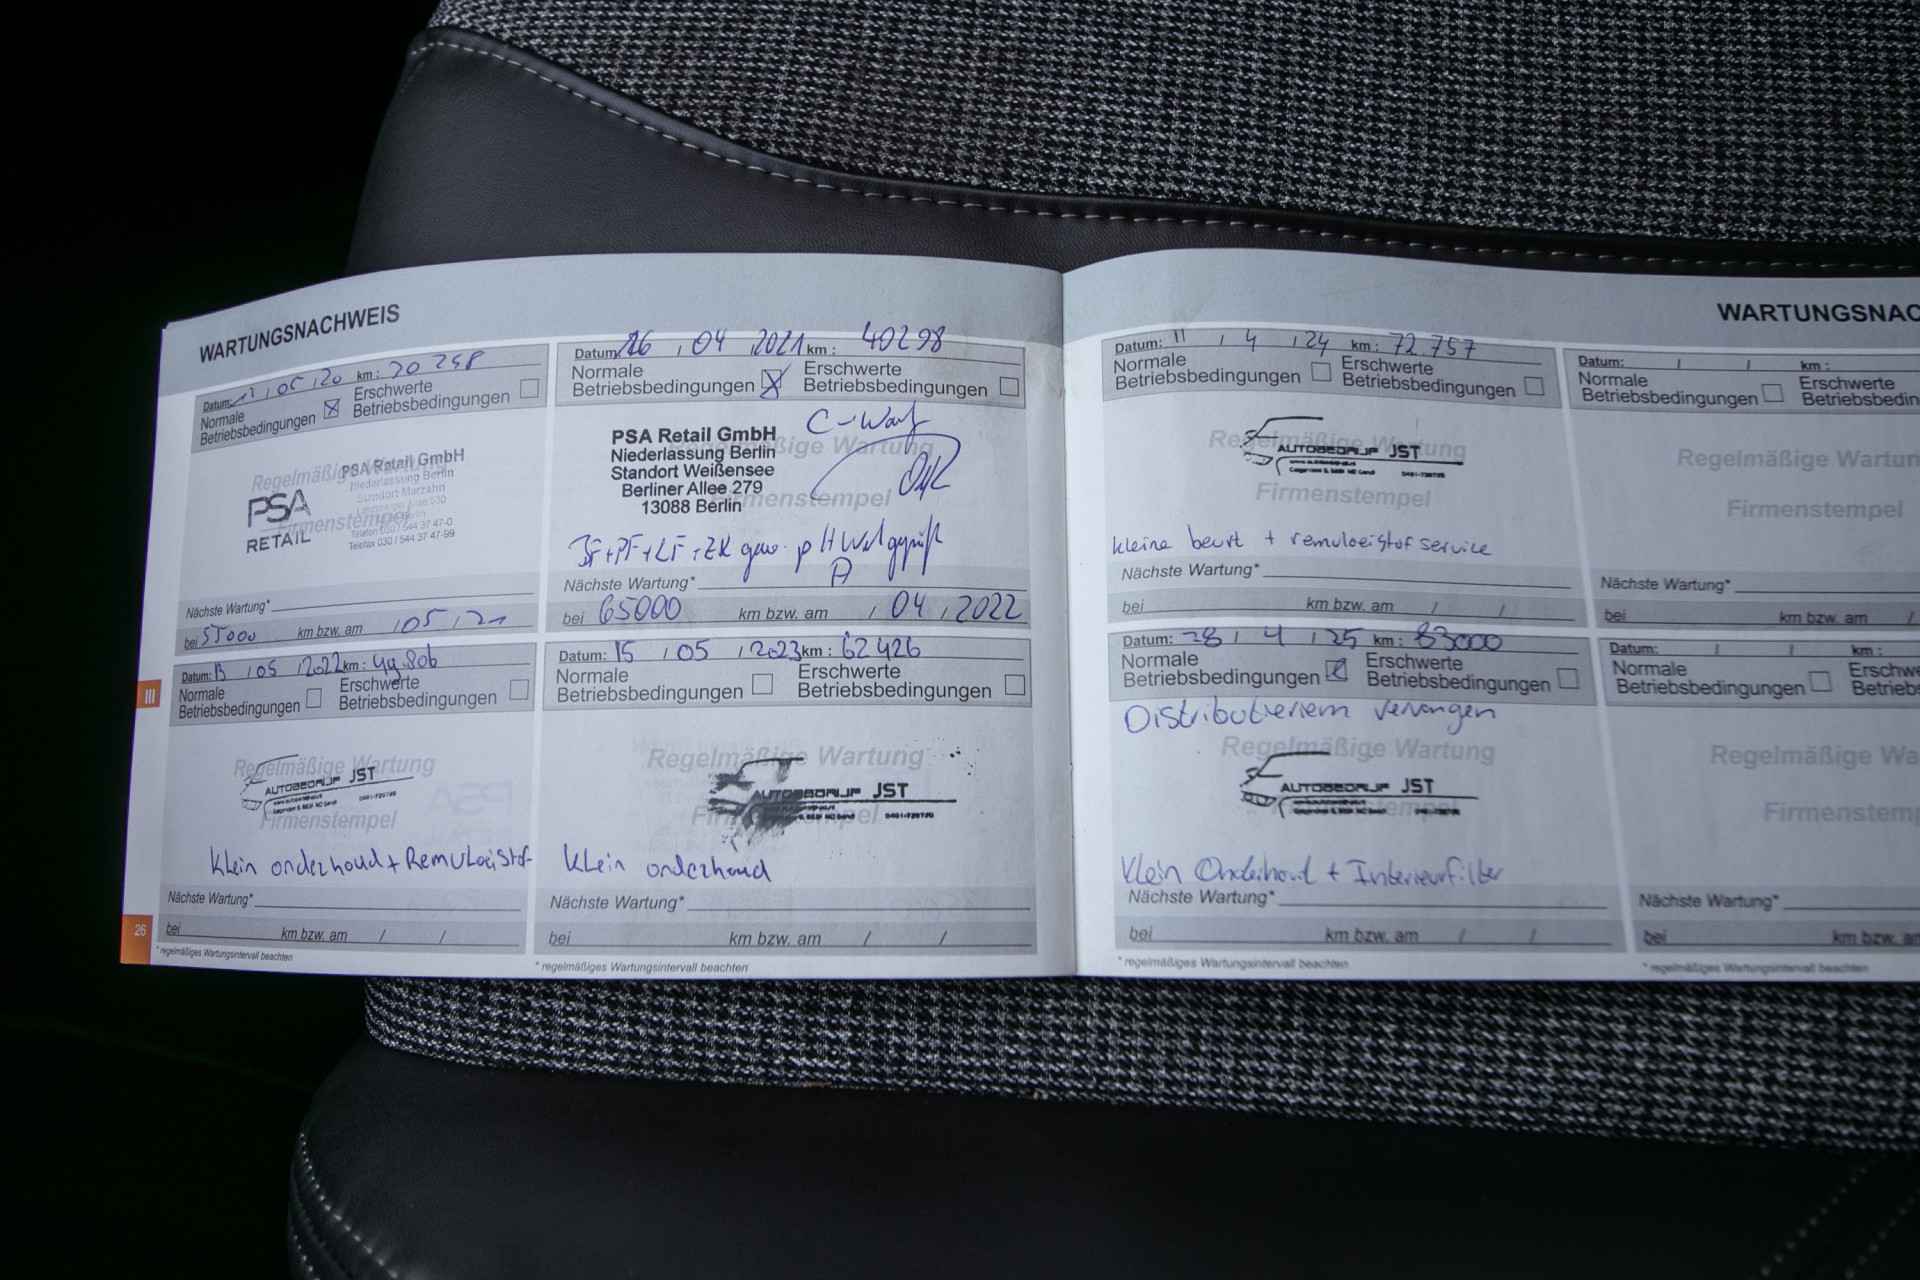 WARTUNGSNACHWEIS
Datum: / 05 / 20 km:
Normale Betriebsbedingungen
Erschwerte Betriebsbedingungen
Regelmäßige Wartung
PSA Retail GmbH
Niederlassung Berlin
Standort Marzahn
PSA
RETAIL
Firmenstempel
Telefon 030 / 544 37 47-0
Telefax 030 / 544 37 47-99
Nächste Wartung*
bei 55000 km bzw. am / 05 / 21
Datum: 26 / 04 / 2021 km: 40298
Normale Betriebsbedingungen
Erschwerte Betriebsbedingungen
PSA Retail GmbH
Niederlassung Berlin
Standort Weißensee
Berliner Allee 279
13088 Berlin
Regelmäßige Wartung
Firmenstempel
C-Wart
Nächste Wartung*
bei 65000 km bzw. am / 04 / 2022
III
Datum: 13 / 05 / 2022 km: 49.806
Normale Betriebsbedingungen
Erschwerte Betriebsbedingungen
Regelmäßige Wartung
AUTOBEDRIJF JST
Firmenstempel
Klein onderhoud + Remvloeistof
Nächste Wartung*
bei km bzw. am / /
26
* regelmäßiges Wartungsintervall beachten
Datum: 15 / 05 / 2023 km: 62426
Normale Betriebsbedingungen
Erschwerte Betriebsbedingungen
Regelmäßige Wartung
AUTOBEDRIJF JST
Firmenstempel
Klein onderhoud
Nächste Wartung*
bei km bzw. am / /
* regelmäßiges Wartungsintervall beachten
WARTUNGSNAC
Datum: 11 / 4 / 24 km: 72.757
Normale Betriebsbedingungen
Erschwerte Betriebsbedingungen
Regelmäßige Wartung
AUTOBEDRIJF JST
Firmenstempel
kleine beurt + remvloeistof service
Nächste Wartung*
bei km bzw. am / /
Datum: / / km:
Normale Betriebsbedingungen
Erschwerte Betriebsbedin
Regelmäßige Wartun
Firmenstempel
Nächste Wartung*
bei km bzw. am /
Datum: 28 / 4 / 25 km: 83000
Normale Betriebsbedingungen
Erschwerte Betriebsbedingungen
Distributieriem vervangen
Regelmäßige Wartung
AUTOBEDRIJF JST
Firmenstempel
Klein Onderhoud + Interieurfilter
Nächste Wartung*
bei km bzw. am / /
* regelmäßiges Wartungsintervall beachten
Datum: / / km:
Normale Betriebsbedingungen
Erschwe Betriebs
Regelmäßige Wa
Firmenstemp
Nächste Wartung*
bei km bzw. am
* regelmäßiges Wartungsintervall beachten